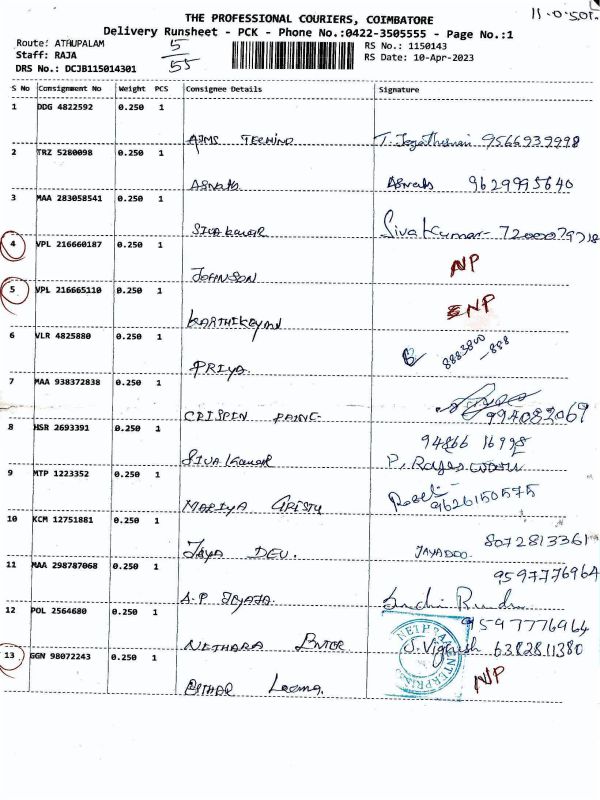 THE PROFESSIONAL COURIERS, COIMBATORE
Delivery Runsheet - PCK - Phone No.:0422-3505555 - Page No.:1
Route: ATHUPALAM
Staff: RAJA
DRS No.: DCJB115014301
5
55
RS No.: 1150143
RS Date: 10-Apr-2023
S No Consignment No Weight PCS Consignee Details Signature
1 DDG 4822592 0.250 1
9566939998
2 TRZ 5280098 0.250 1
9629995640
3 MAA 283058541 0.250 1
SIVA KUMAR Siva Kumar-
4 VPL 216660187 0.250 1
JOHNSON NP
5 VPL 216665110 0.250 1
KARTHIKEYAN NP
6 VLR 4825880 0.250 1
PRIYA
7 MAA 938372838 0.250 1
CRISPIN 994082069
8 HSR 2693391 0.250 1
94866
SIVA KUMAR
9 MTP 1223352 0.250 1
MARIYA 9626150575
10 KCM 12751881 0.250 1
JAYA DEV. 8072813361
11 MAA 298787068 0.250 1
9597776964
A.P
12 POL 2564680 0.250 1
9597776964
NETHRA ENTERPRISES
NETHARA S. Vignesh 6382811380
13 GGN 98072243 0.250 1
Leema NP